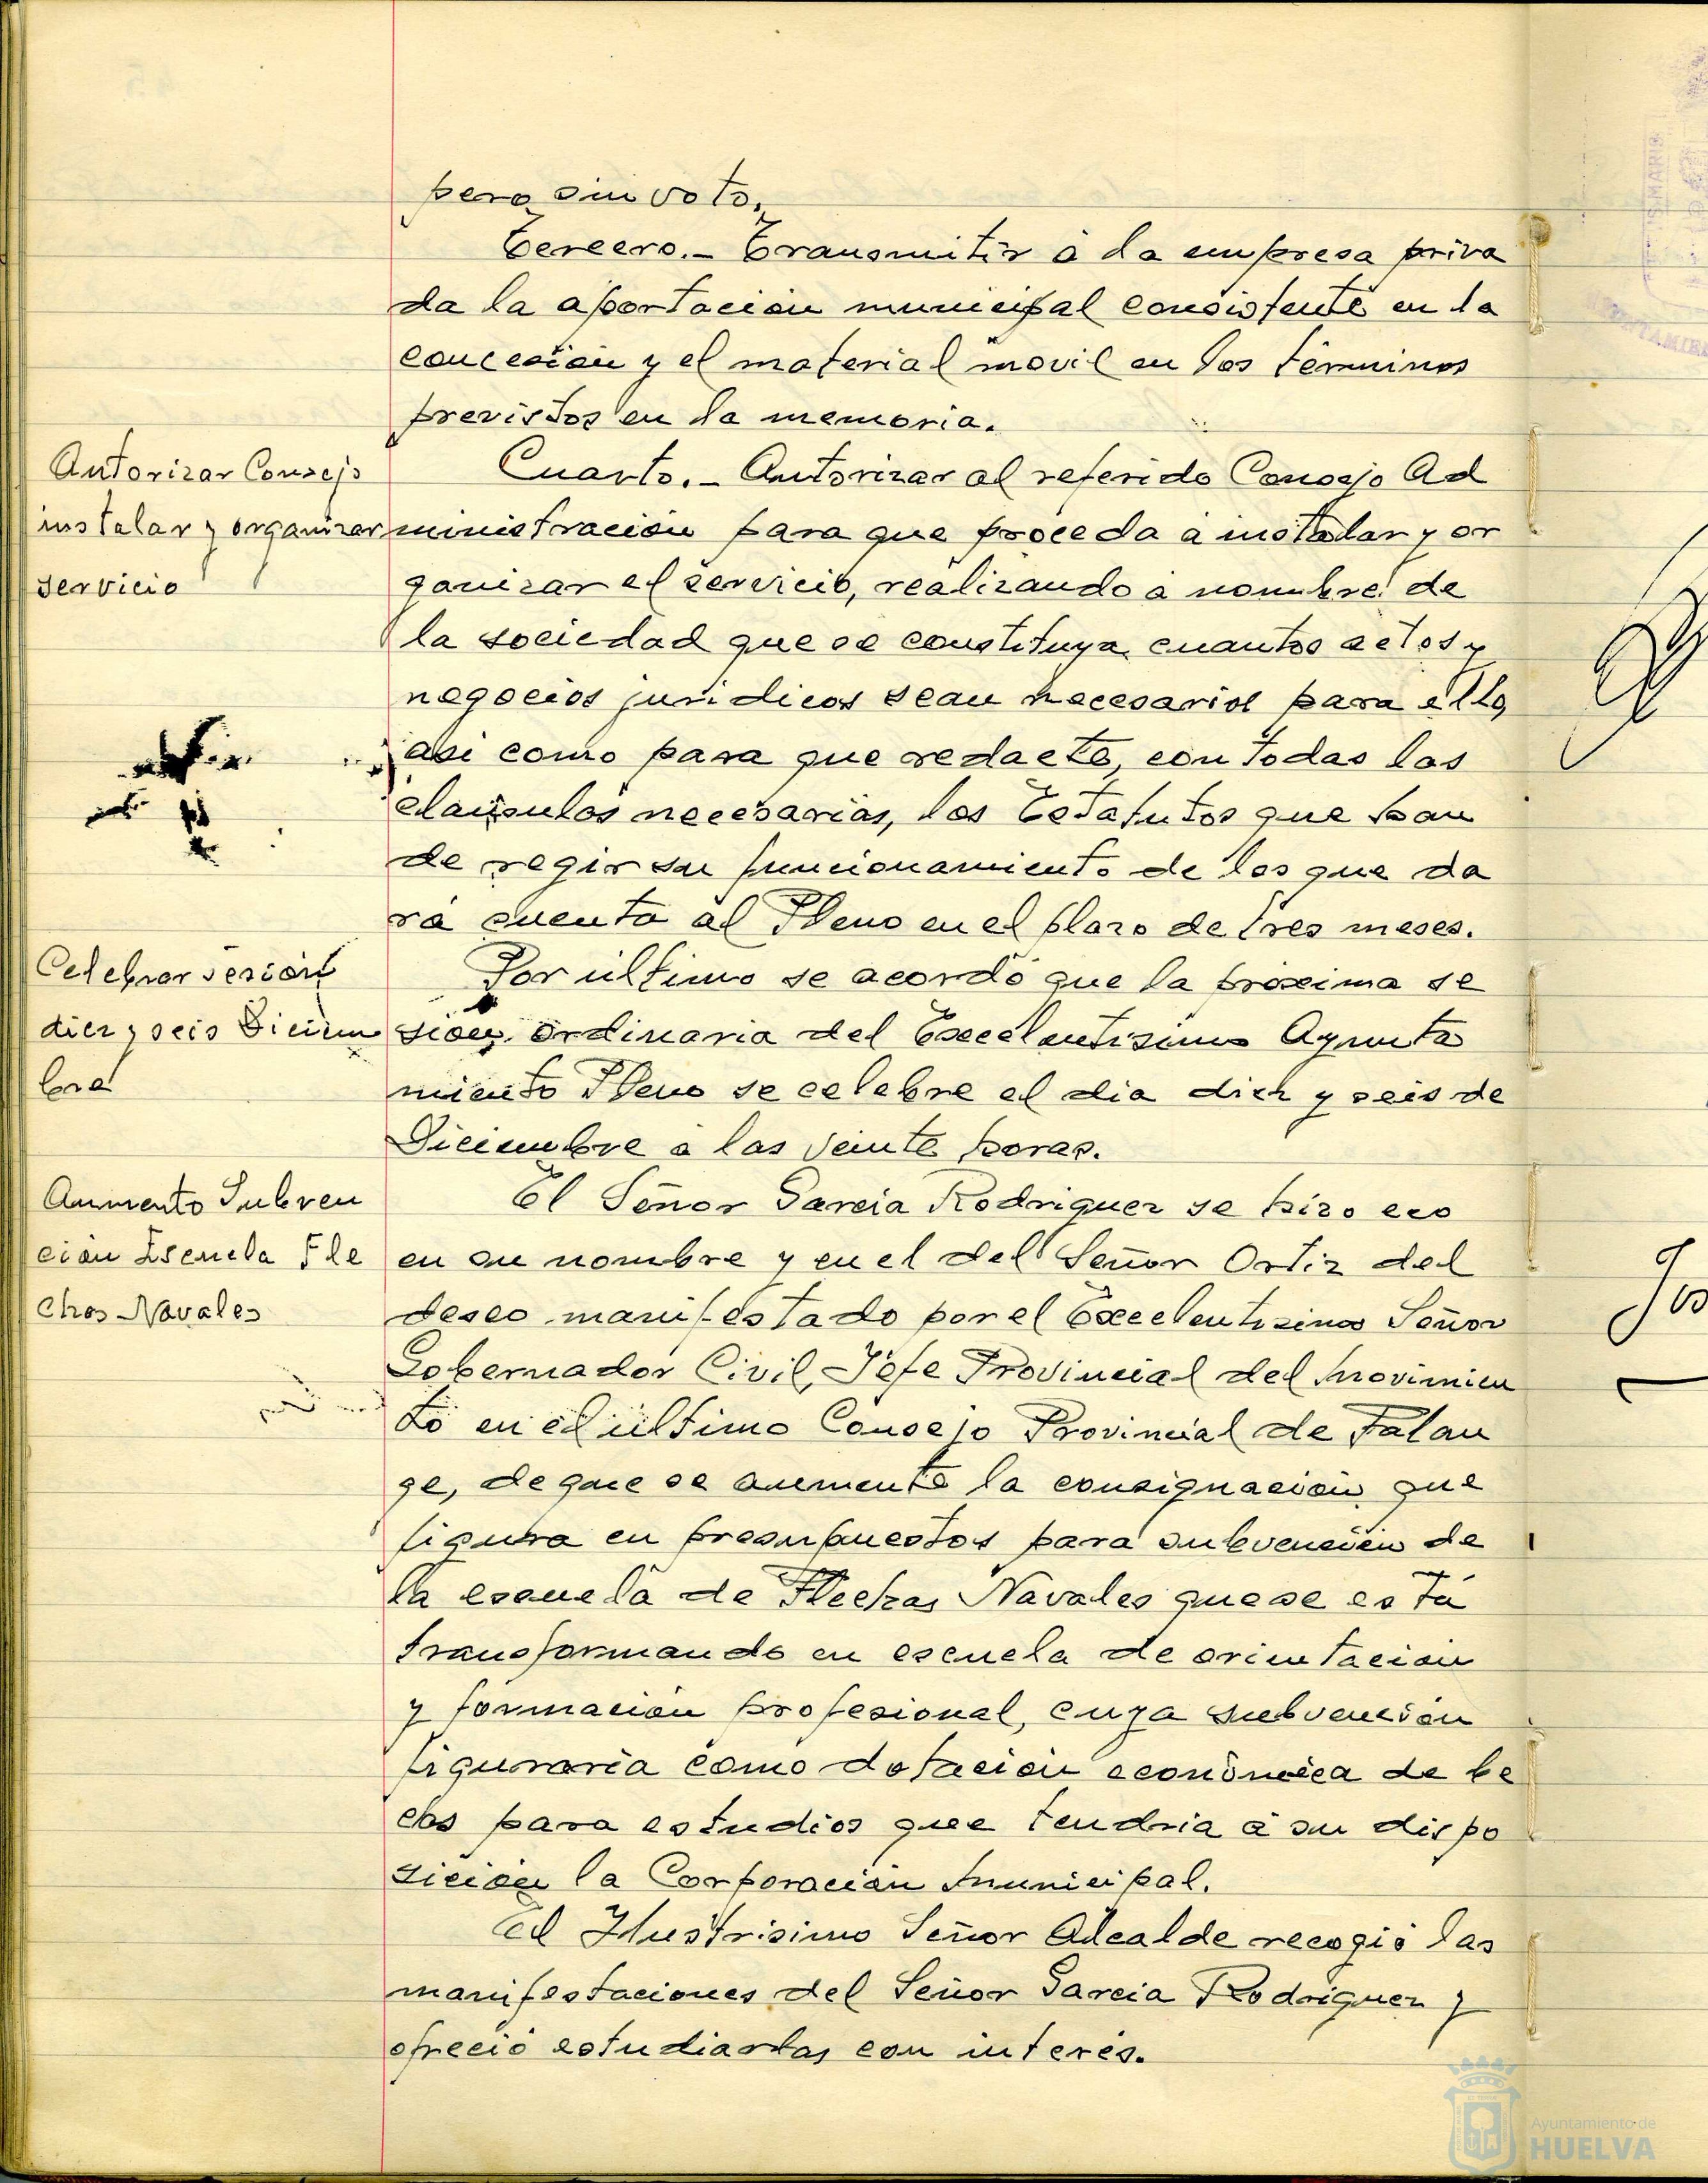 pero sin voto.
Tercero.- Transmitir a la empresa priva
da la aportación municipal consistente en la
concesión y el material movil en los términos
previstos en la memoria.
Autorizar Consejo
instalar y organizar
servicio
Cuarto.- Autorizar al referido Consejo Ad
ministración para que proceda a instalar y or
ganizar el servicio, realizando a nombre de
la sociedad que se constituya cuantos actos y
negocios juridicos sean necesarios para ello,
asi como para que redacte, con todas las
clausulas necesarias, los Estatutos que han
de regir su funcionamiento de los que da
rá cuenta al Pleno en el plazo de tres meses.
Celebrar sesión
diez y seis Diciem
bre
Por último se acordó que la proxima se
sion ordinaria del Excelentisimo Ayunta
miento Pleno se celebre el dia diez y seis de
Diciembre a las veinte horas.
Aumento Subven
cion Escuela Fle
chas Navales
El Señor Garcia Rodriguez se hizo eco
en su nombre y en el del Señor Ortiz del
deseo manifestado por el Excelentisimo Señor
Gobernador Civil, Jefe Provincial del Movimien
to en el último Consejo Provincial de Falan
ge, de que se aumente la consignación que
figura en presupuestos para subvención de
la escuela de Flechas Navales que se está
transformando en escuela de orientacion
y formación profesional, cuya subvención
figuraria como dotación económica de be
cas para estudios que tendria a su dispo
sición la Corporación Municipal.
El Ilustrisimo Señor Alcalde recogió las
manifestaciones del Señor Garcia Rodriguez y
ofreció estudiarlas con interés.
Ayuntamiento de
HUELVA